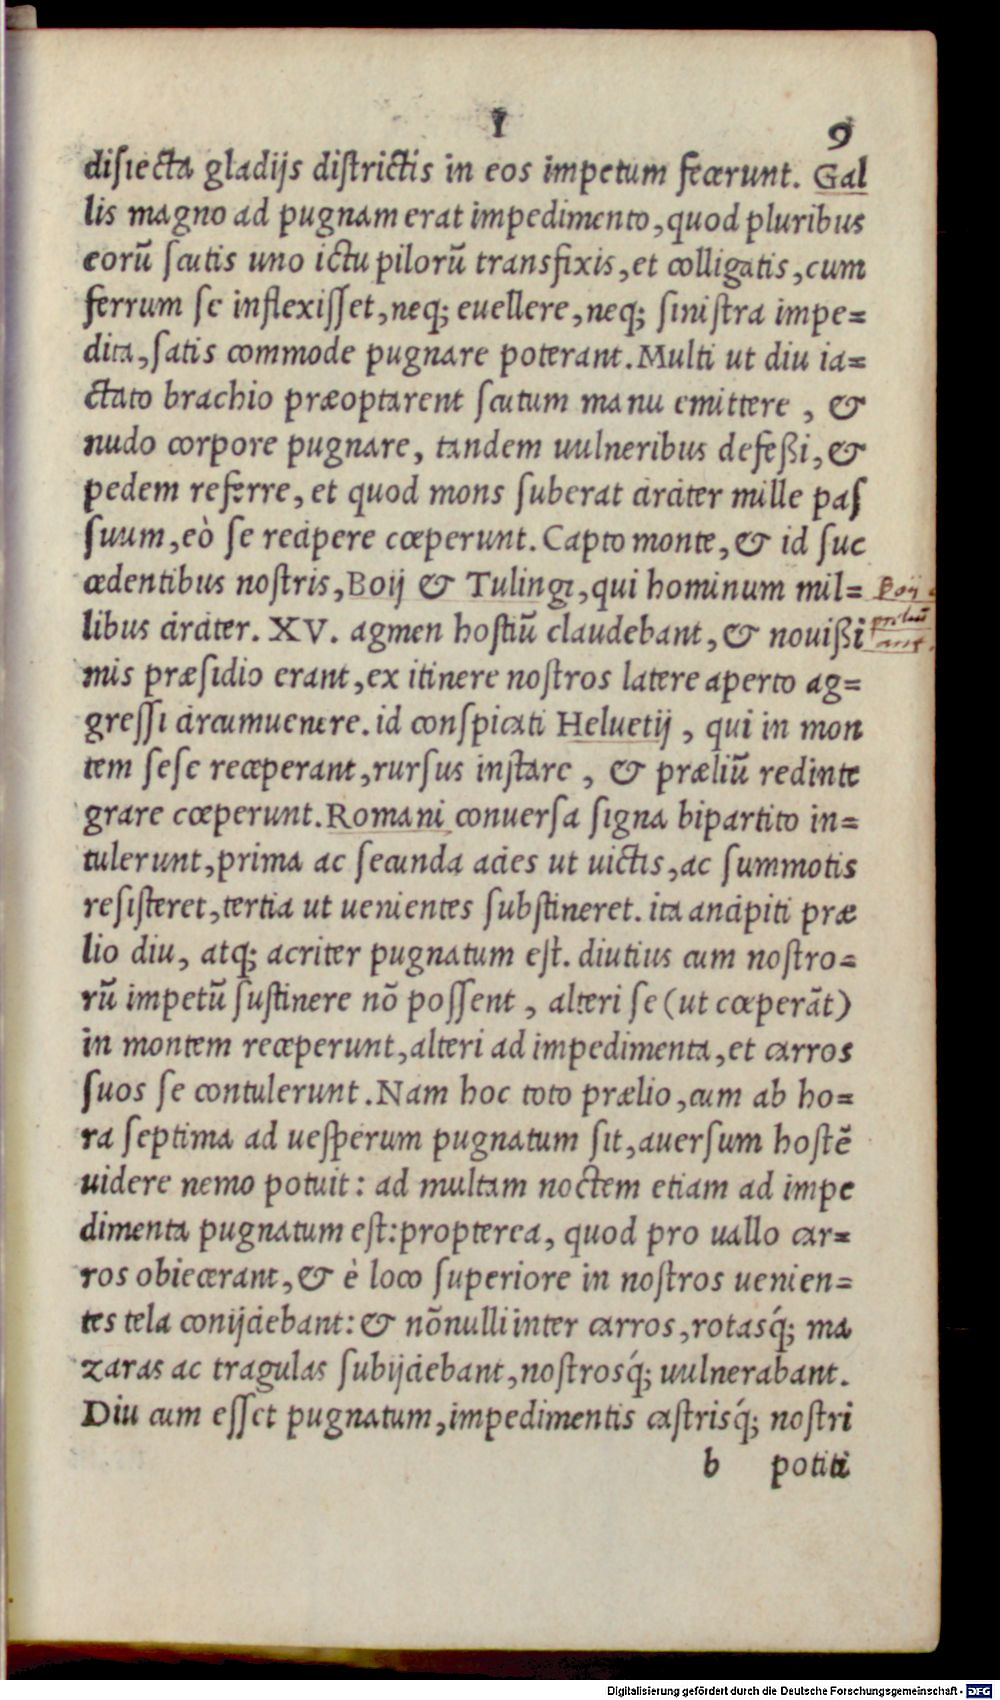 I 9
disiecta gladijs districtis in eos impetum fecerunt. Gal
lis magno ad pugnam erat impedimento, quod pluribus
eorũ scutis uno ictu pilorũ transfixis, et colligatis, cum
ferrum se inflexisset, neq; euellere, neq; sinistra impe=
dita, satis commode pugnare poterant. Multi ut diu ia=
ctato brachio præoptarent scutum manu emittere, &
nudo corpore pugnare, tandem uulneribus defeßi, &
pedem referre, et quod mons suberat circiter mille pas
suum, eò se recipere cœperunt. Capto monte, & id suc
cedentibus nostris, Boij & Tulingi, qui hominum mil=
libus circiter. XV. agmen hostiũ claudebant, & nouißi
mis præsidio erant, ex itinere nostros latere aperto ag=
gressi circumuenere. id conspicati Heluetij, qui in mon
tem sese receperant, rursus instare, & præliũ redinte
grare cœperunt. Romani conuersa signa bipartito in=
tulerunt, prima ac secunda acies ut uictis, ac summotis
resisteret, tertia ut uenientes substineret. ita ancipiti præ
lio diu, atq; acriter pugnatum est. diutius cum nostro=
rũ impetũ sustinere nõ possent, alteri se (ut cœperãt)
in montem receperunt, alteri ad impedimenta, et carros
suos se contulerunt. Nam hoc toto prælio, cum ab ho=
ra septima ad uesperum pugnatum sit, auersum hostẽ
uidere nemo potuit: ad multam noctem etiam ad impe
dimenta pugnatum est: propterea, quod pro uallo car=
ros obiecerant, & è loco superiore in nostros uenien=
tes tela conijciebant: & nõnulli inter carros, rotasq́; ma
zaras ac tragulas subijciebant, nostrosq́; uulnerabant.
Diu cum esset pugnatum, impedimentis castrisq́; nostri
b potiti
Boij
Digitalisierung gefördert durch die Deutsche Forschungsgemeinschaft - DFG